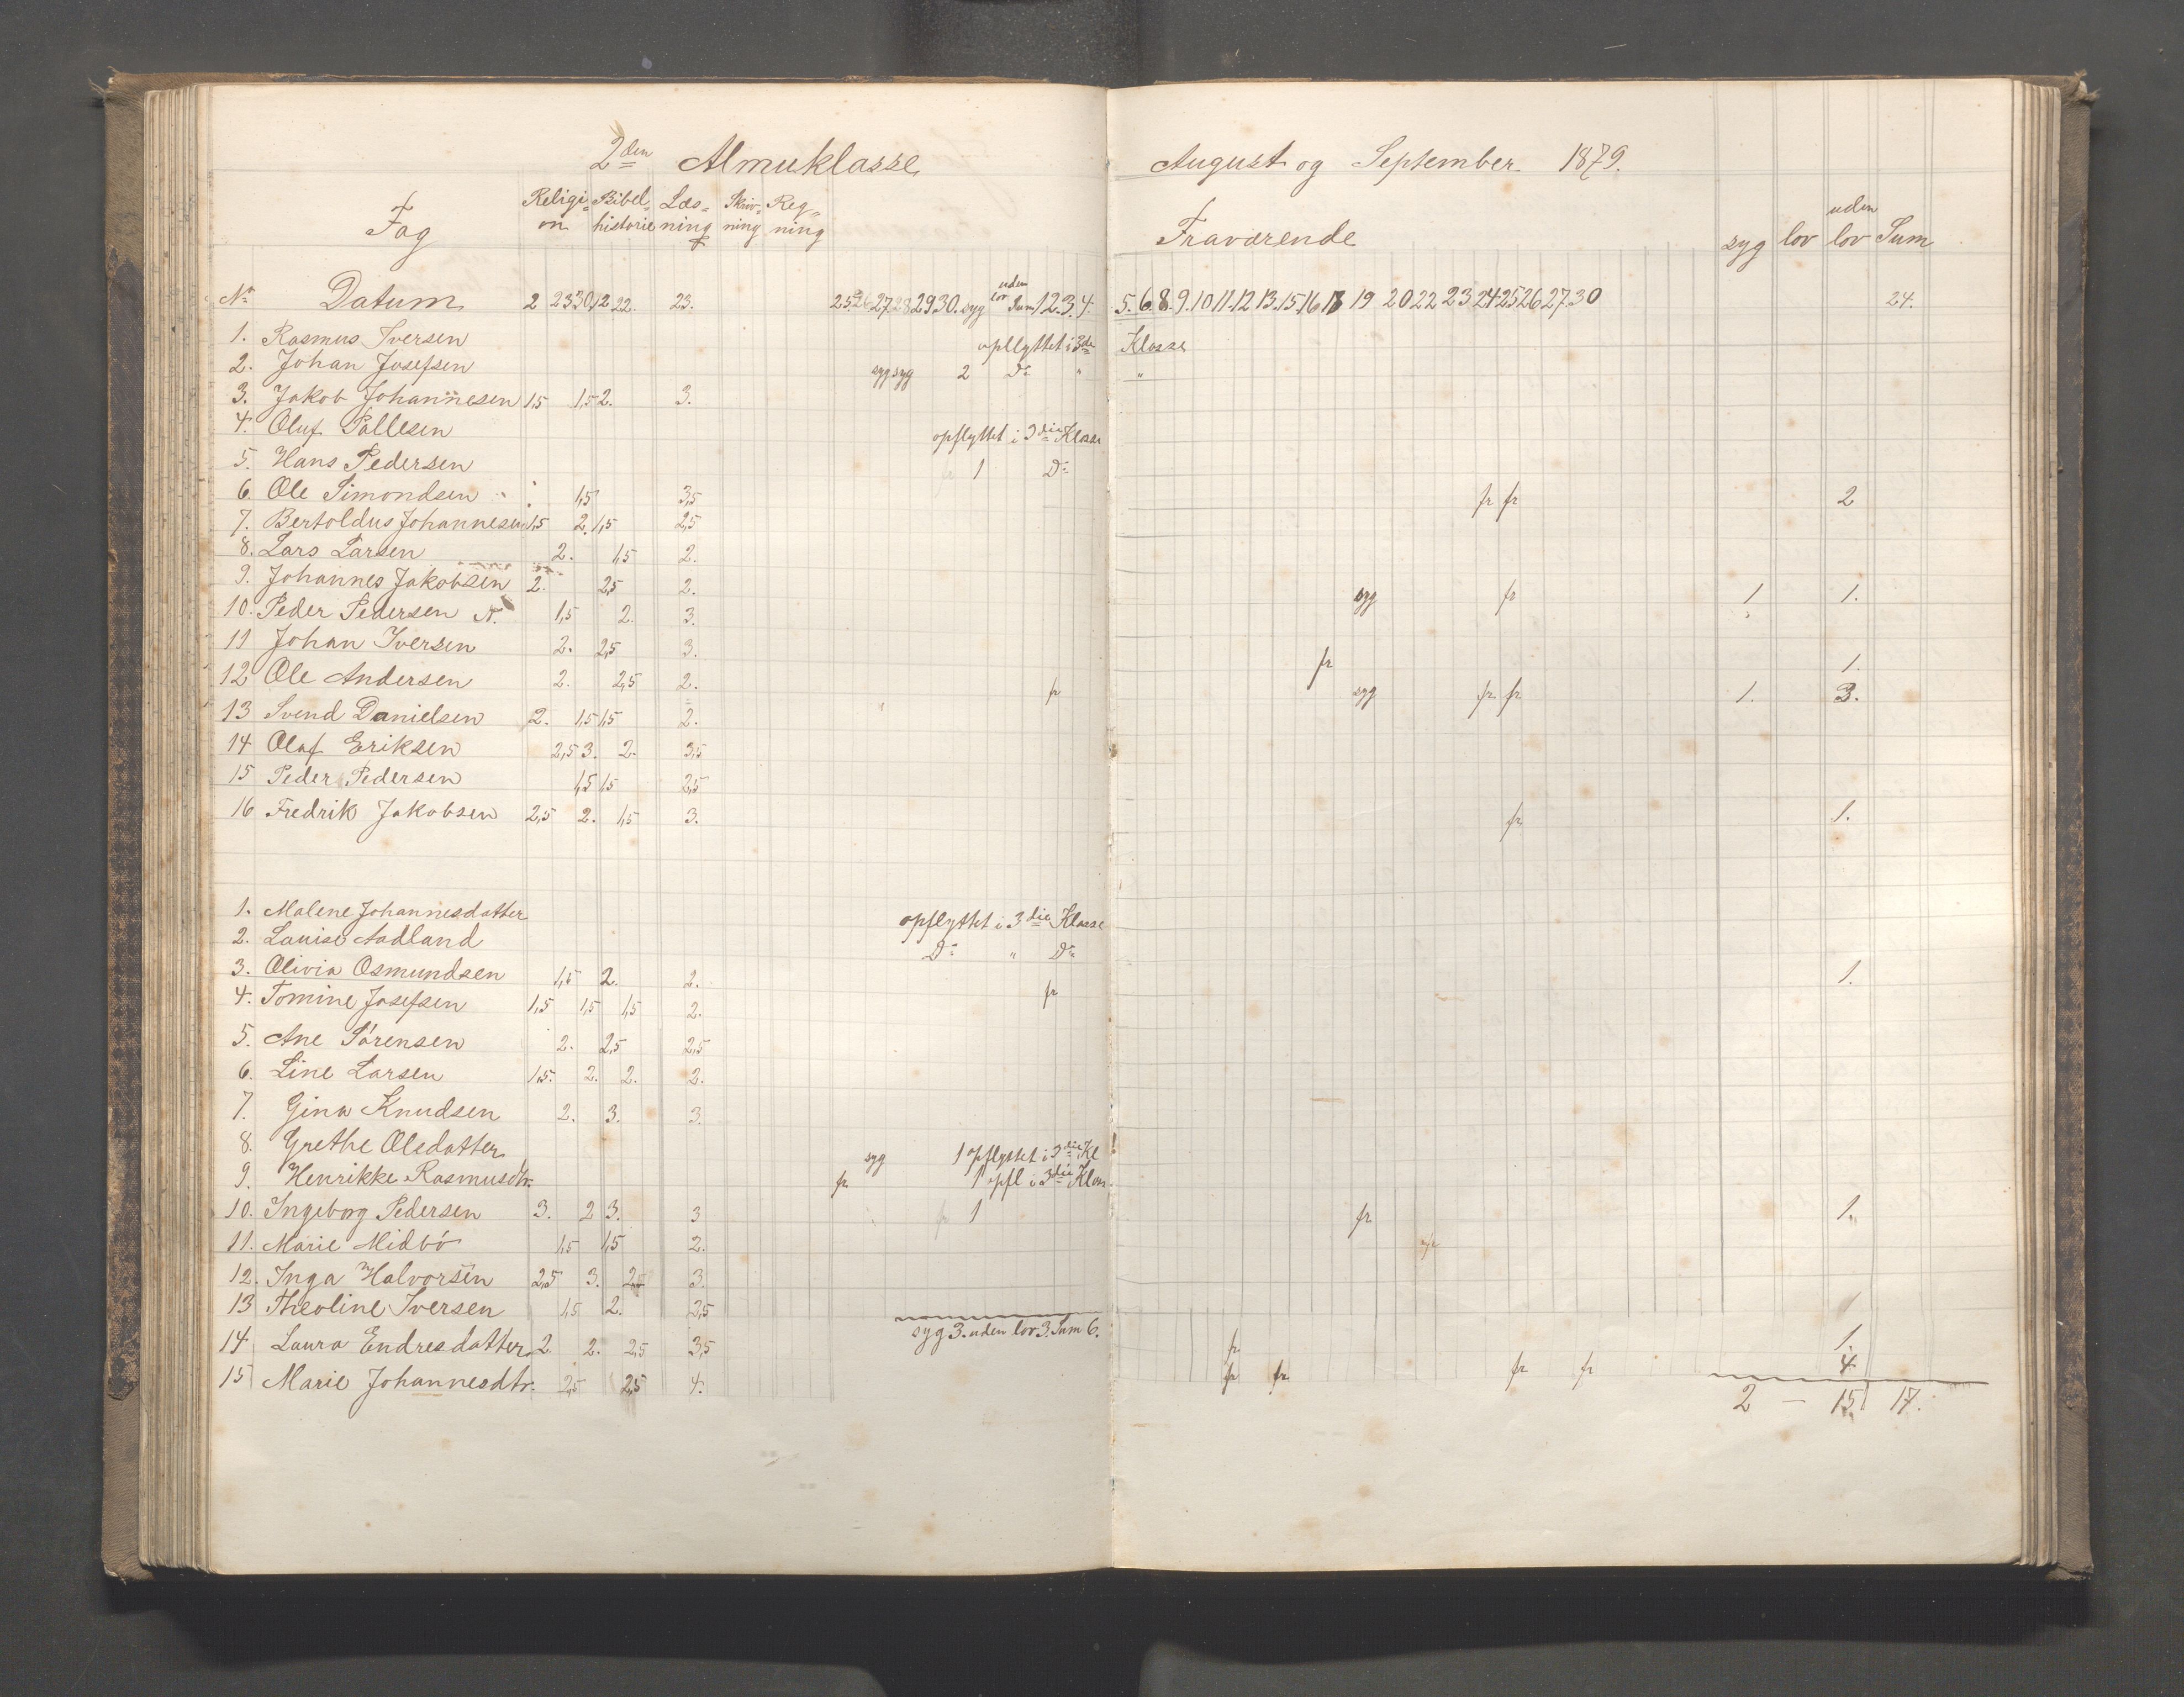 2den Almuklasse August og September 1879.
Fag Religion Bibelhistorie Læsning Skrivning Regning Fraværende syg lov uden lov Sum
No Datum 2 23 30 12. 22. 23. 25. 26 27 28 29 30. syg uden lov Sum 1 2. 3. 4. 5. 6. 8. 9. 10 11. 12 13. 15. 16 18 19 20 22 23 24 25 26 27. 30 24.
1. Rasmus Iversen opflyttet i 3die Klasse
2. Johan Josefsen syg syg 2 Do " "
3. Jakob Johannesen 1,5 1,5 2. 3.
4. Oluf Pallesen opflyttet i 3die Klasse
5. Hans Pedersen 1 Do
6. Ole Simondsen 1,5 3,5 fr fr 2
7. Bertoldus Johannesen 1,5 2. 1,5 2,5
8. Lars Larsen 2. 1,5 2.
9. Johannes Jakobsen 2. 2,5 2. syg fr 1 1.
10. Peder Pedersen N. 1,5 2. 3.
11 Johan Iversen 2. 2,5 3. fr 1.
12 Ole Andersen 2. 2,5 2. fr syg fr fr 1. 3.
13 Svend Danielsen 2. 1,5 1,5 2.
14 Olaf Eriksen 2,5 3. 2. 3,5
15 Peder Pedersen 1,5 1,5 2,5
16 Fredrik Jakobsen 2,5 2. 1,5 3. fr 1.
1. Malene Johannesdatter opflyttet i 3die Klasse
2. Louise Aadland Do " Do
3. Olivia Osmundsen 1,5 2. 2. fr 1.
4. Tomine Josefsen 1,5 1,5 1,5 2.
5. Ane Sørensen 2. 2,5 2,5
6. Line Larsen 1,5. 2. 2. 2.
7. Gina Knudsen 2. 3. 3.
8. Grethe Olsdatter syg 1 opflyttet i 3die Kl
9. Henrikke Rasmusdtr. fr 1 opfl i 3die Klas
10. Ingeborg Pedersen 3. 2 3. 3 fr 1 fr 1.
11. Marie Midbö 1,5 1,5 2.
12. Inga Halvorsen 2,5 3. 2,5 3.
13 Theoline Iversen 1,5 2. 2,5
syg 3. uden lov 3. Sum 6.
14 Laura Endresdatter 2. 2. 2,5 3,5 fr 1.
15 Marie Johannesdtr. 2,5 2,5 4. fr fr fr fr 4
2 – 15 17.